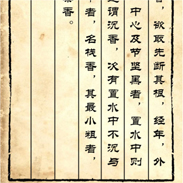 ，欲取先断其根，经年，外
中心及节坚黑者，置水中则
之谓沉香，次有置水中不沉与
者，名栈香，其最小粗者，
香。